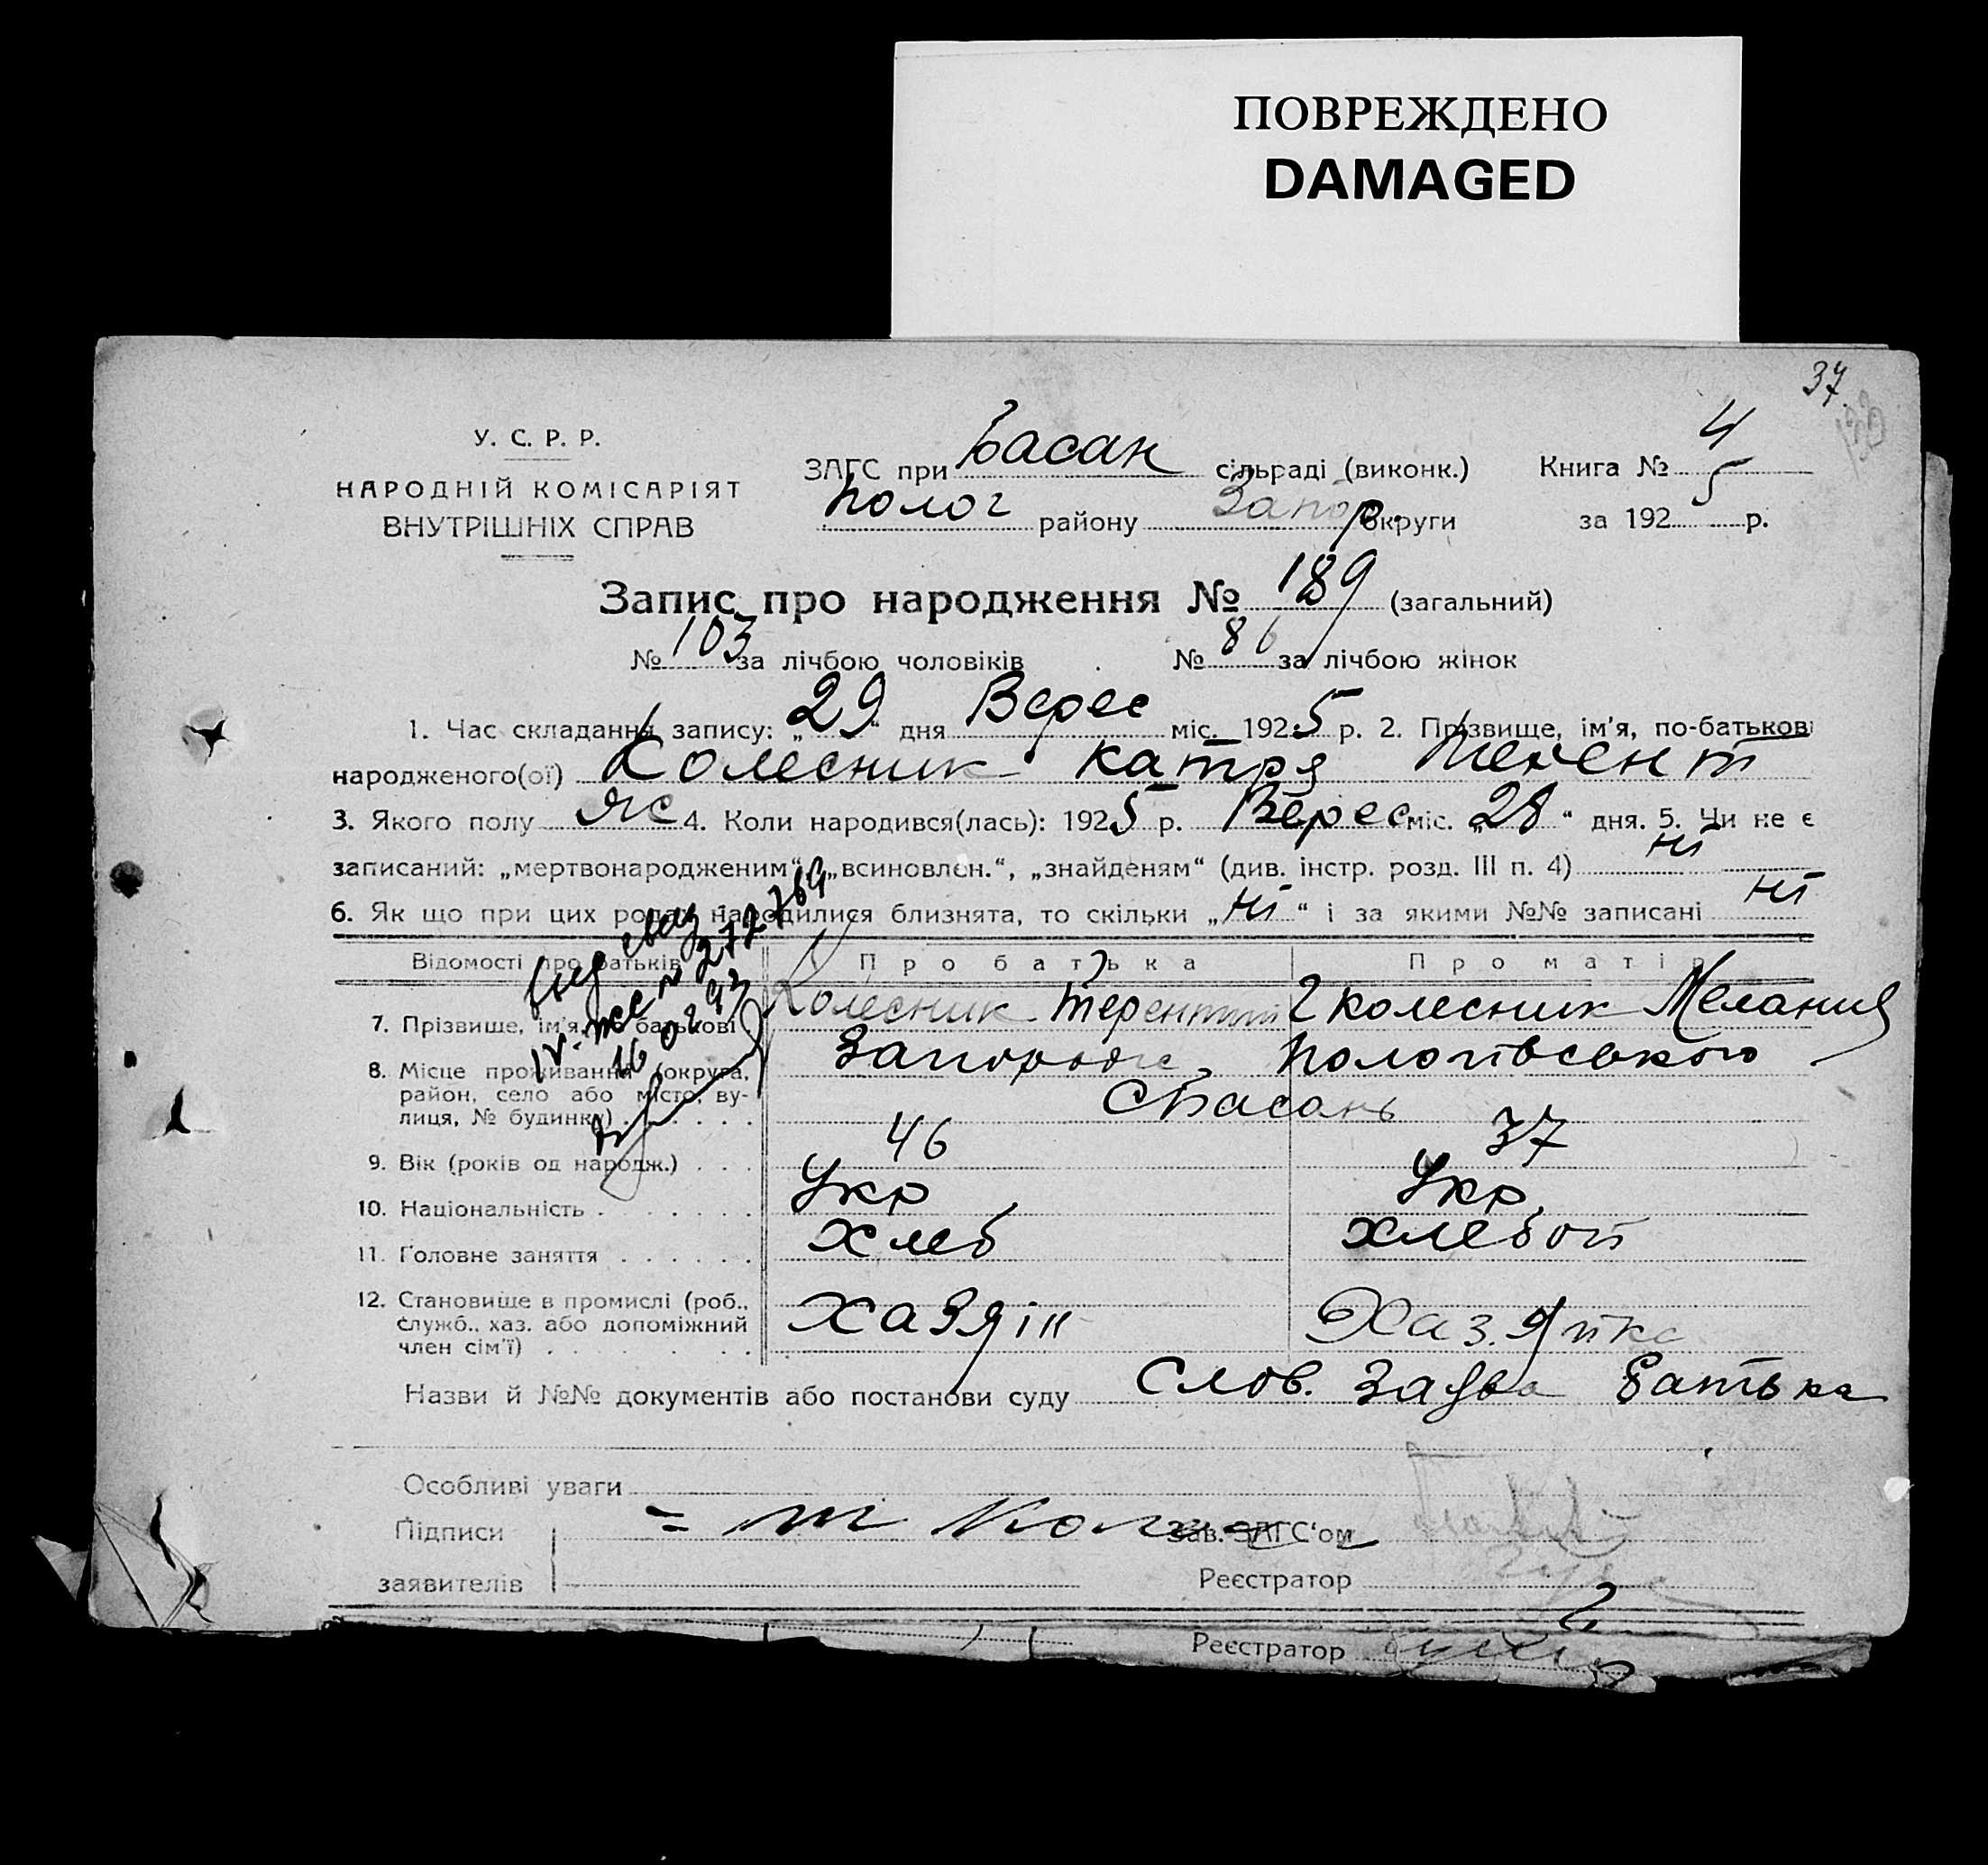 ПОВРЕЖДЕНО
DAMAGED
37
У. С. Р. Р.
НАРОДНІЙ КОМІСАРІЯТ
ВНУТРІШНІХ СПРАВ
ЗАГС при Басан сільраді (виконк.) Книга № 4
Полог району Запор. округи за 1925 р.
Запис про народження № 189 (загальний)
№ 103 за лічбою чоловіків № 86 за лічбою жінок
1. Час складання запису: „29“ дня Верес міс. 1925 р. 2. Прізвище, ім'я, по-батькові
народженого(ої) Колесник Катря
3. Якого полу жс 4. Коли народився(лась): 1925 р. Верес міс. „28“ дня. 5. Чи не є
записаний: „мертвонародженим“, „всиновлен.“, „знайденям“ (див. інстр. розд. III п. 4) ні
6. Як що при цих родах народилися близнята, то скільки „ні“ і за якими №№ записані ні
Відомості про батьків Про батька Про матір
7. Прізвише, ім'я, по батькові Колесник Терентий Колесник Мелания
8. Місце проживання (округа, Запорожс, Пологівського
район, село або місто, ву- с Басань
лиця, № будинку)
9. Вік (років од народж.) 46 37
10. Національність Укр Укр
11. Головне заняття Хлеб Хлебоп
12. Становише в промислі (роб., Хазяін Хаз.яйка
служб., хаз. або допоміжний
член сім'ї)
Назви й №№ документів або постанови суду Слов. Заява батька
Особливі уваги
Підписи Зав. ЗАГС'ом
заявителів Реєстратор
Реєстратор